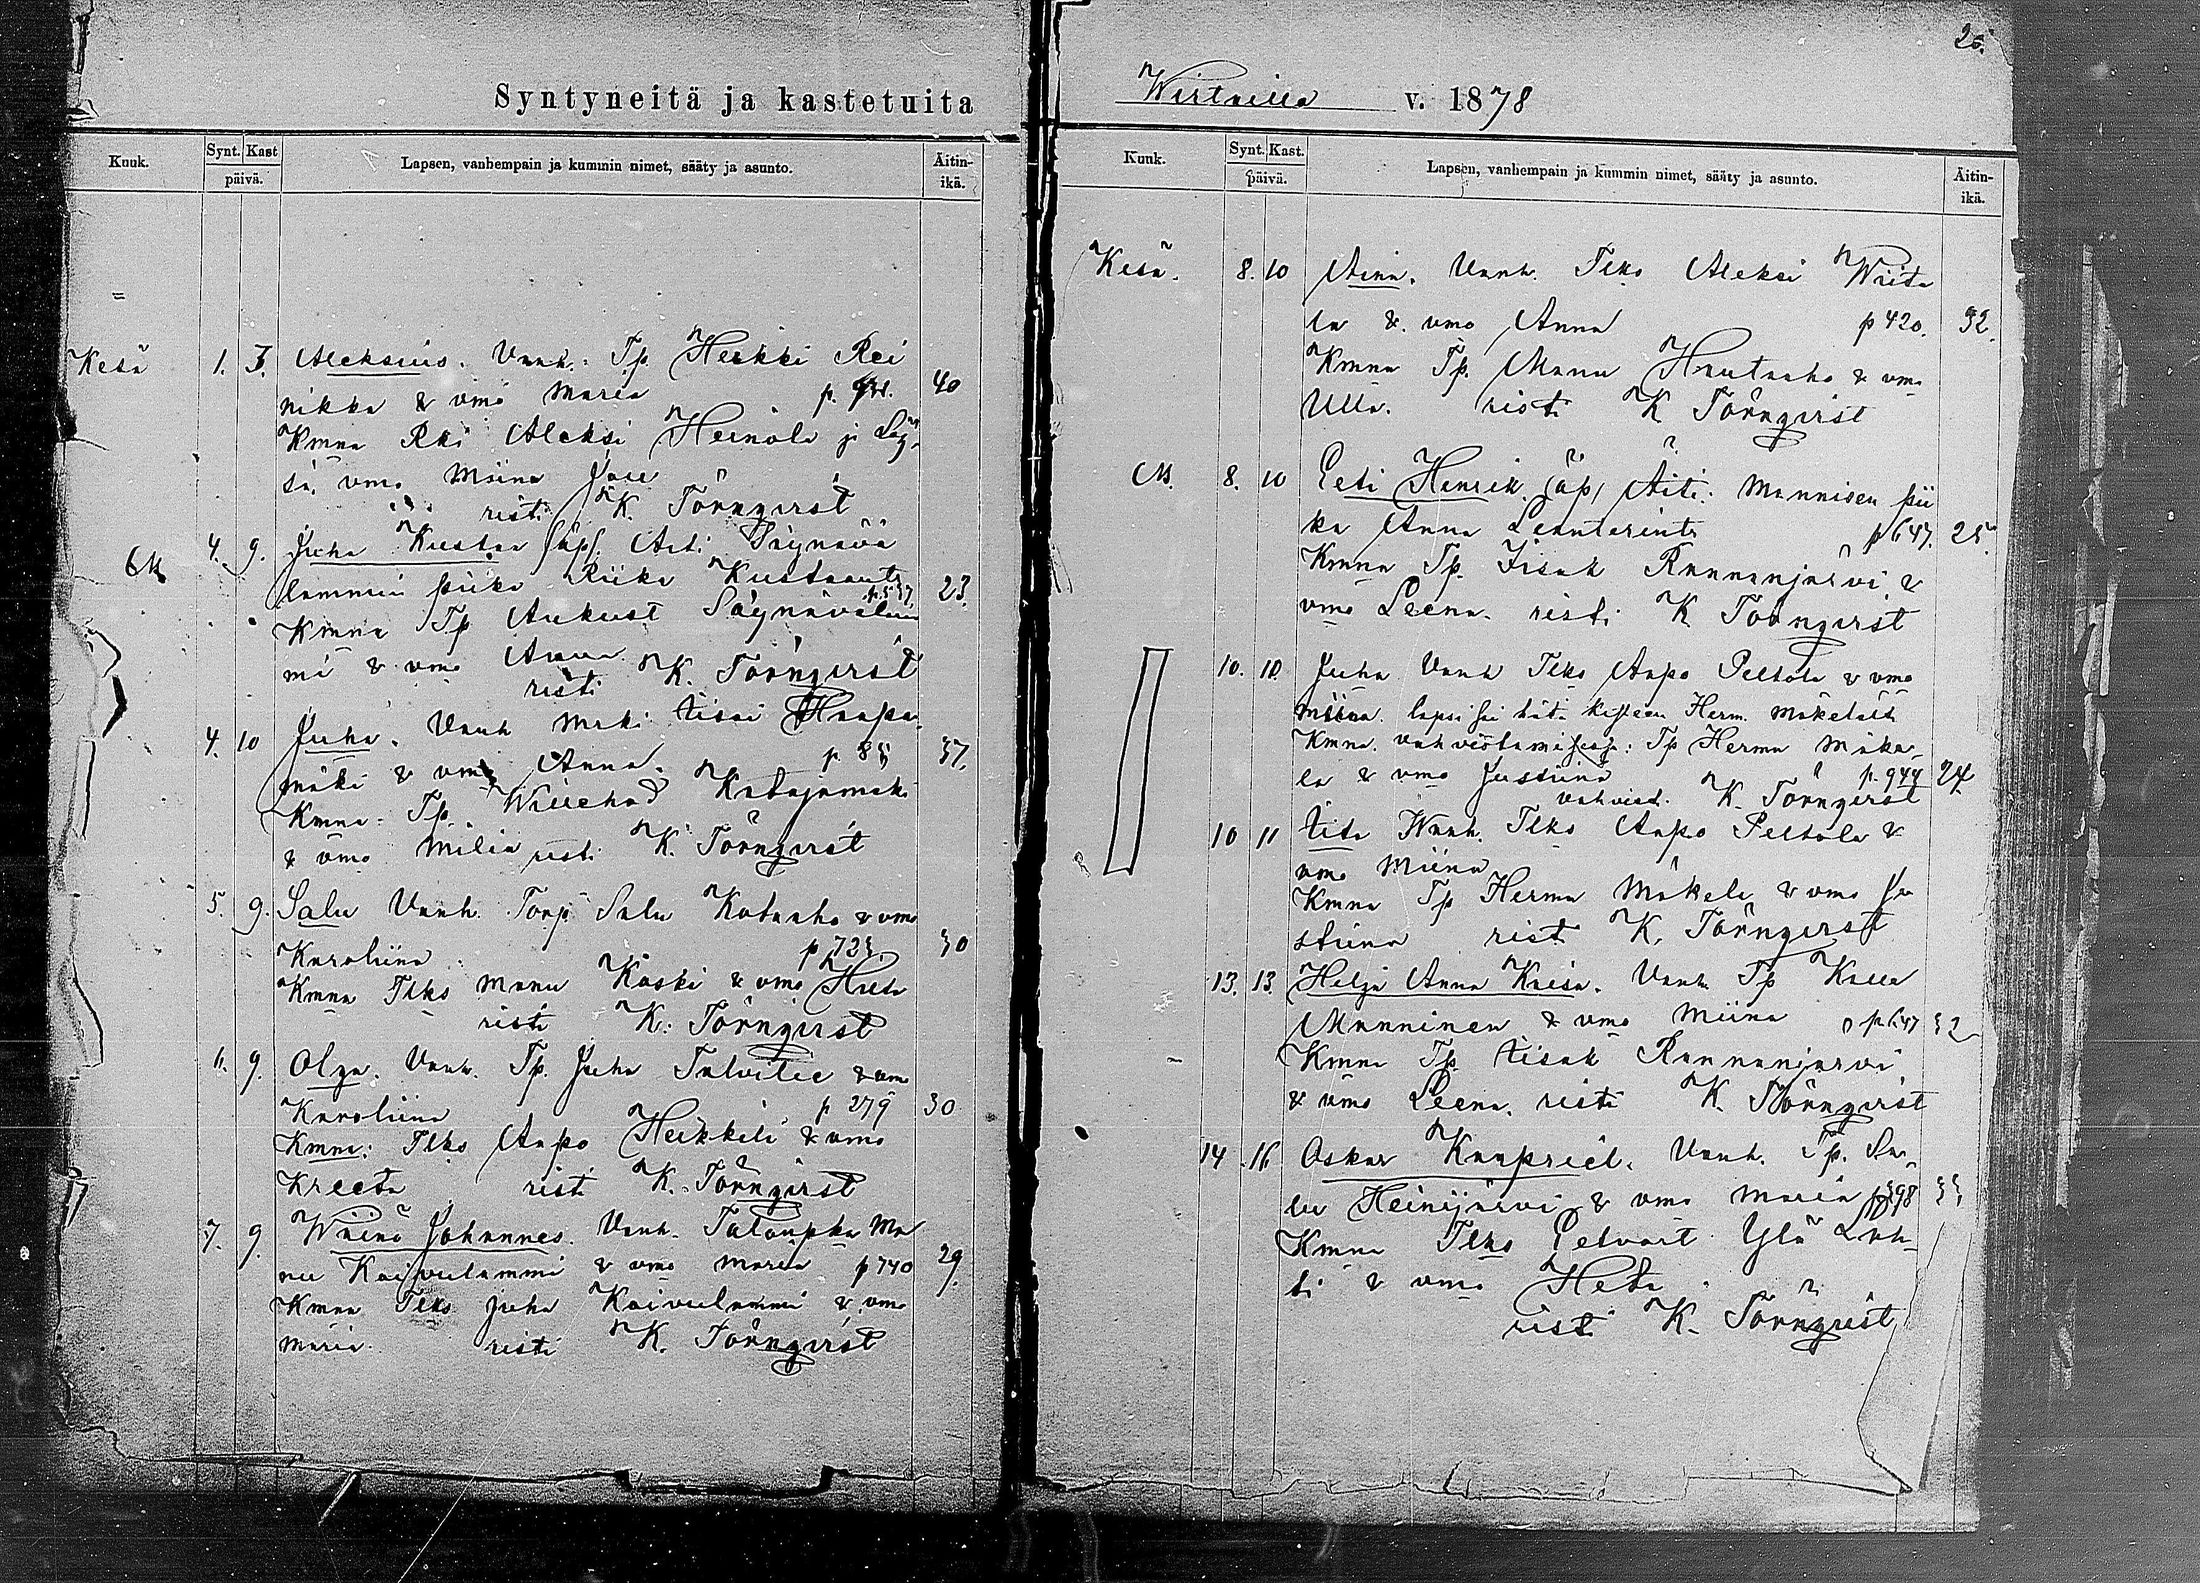 Syntyneitä ja kastetuita
Kuuk. Synt. Kast päivä. Lapsen, vanhempain ja kummin nimet, sääty ja asunto. Äitin-ikä.
Kesä 1. 3. Aleksius. Vanh. Tp. Heikki Rei
nikka & vmo Maria p. 40
Kmna Rki Aleksi Heinola ja
vmo Miina
risti K. Törnqvist
4. 9. Juha Kustaa (äp). Äiti Säynävä
lammin piika Riika Kustaant. p. 537. 23.
Kmna Tp Aukust Säynävälam
mi & vmo Anna
risti K. Törnqvist
4. 10 Juha. Vanh Mäki Iisai Haapa
mäki & vmo Anna. p. 85 37.
Kmna Tp. Willehad Katajamäki
& vmo Milia risti K. Törnqvist
5. 9. Salu Vanh. Torp. Salu Kotaaho & vmo
Karoliina p 723. 30
Kmna Tlks Manu Koski & vmo Heta
risti K. Törnqvist
6. 9. Olga. Vanh. Tp. Juha Talvitie & vmo
Karoliina p 279 30
Kmna: Tlks Aapo Heikkilä & vmo
Kreeta risti K. Törnqvist
7. 9. Wäinö Johannes. Vanh. Talonpka Ma
nu Koivulammi & vmo Maria p 740 29.
Kmna Tlks Juha Koivulammi & vmo
Maria. risti K. Törnqvist
25.
Wirtailla v. 1878
Kuuk. Synt. Kast. päivä. Lapsen, vanhempain ja kummin nimet, sääty ja asunto. Äitin-ikä.
Kesä. 8. 10 Aina. Vanh. Tlks Aleksi Wiita
la & vmo Anna p 420. 32.
Kmna Tp. Manu Hautaaho & vmo
Ulla. risti K Törnqvist
8. 10 Eeti Henrik. (äp) Äiti: Mannisen pii
ka Anna Leanterint. p 647. 25
Kmna Tp. Iisak Rannanjärvi &
vmo Leena. risti K. Törnqvist
10. 10. Juha Vanh Tlks Aapo Peltola & vmo
Miina. lapsi sai hätä kasteen Herm. Mäkelältä
Kmna. vahvistamisessa: Tp Herma Mäke-
lä & vmo Justiina p. 944 24.
vahvist. K. Törnqvist
10 11 Iita Wanh. Tlks Aapo Peltola &
vmo Miina
Kmna Tp Herma Mäkelä & vmo Ju
stiina risti K. Törnqvist
13. 13. Helja Anna Kaisa. Vanh. Tp Kalle
Manninen & vmo Miina p 647 32
Kmna Tp. Iisak Rannanjärvi
& vmo Leena. risti K. Törnqvist
14 16 Oskar Kaapriel. Vanh. Tp. Sa-
lu Heinijärvi & vmo Maria p 398 33.
Kmna Tlks Eetvart Ylä Lah-
ti & vmo Heta
risti K. Törnqvist